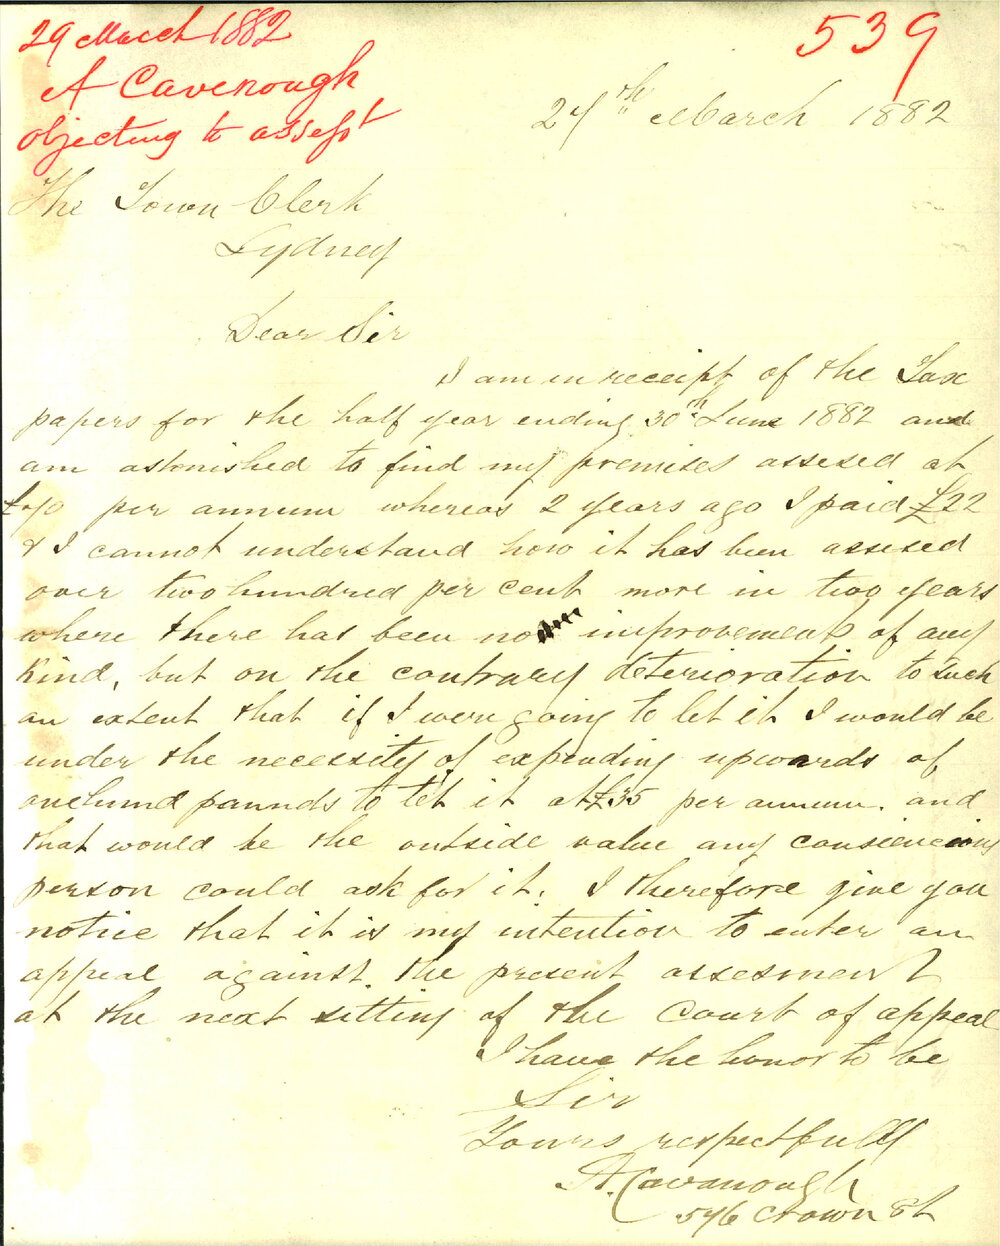 29 March 1882
A Cavenough
objecting to assesst
539
27th March 1882
The Town Clerk
Sydney
Dear Sir
I am in receipt of the Tax
papers for the half year ending 30th June 1882 and
am astonished to find my premises assesed at
£70 per annum whereas 2 years ago I paid £22
& I cannot understand how it has been assesed
over two hundred per cent more in two years
where there has been no improvements of any
Kind, but on the contrary deterioration to such
an extent that if I were going to let it I would be
under the necessity of expending upwards of
one hund pounds to let it at £35 per annum. and
that would be the outside value any consciencious
person could ask for it. I therefore give you
notice that it is my intention to enter an
appeal against the present assesment
at the next sitting of the Court of appeal
I have the honor to be
Sir
Yours respectfully
A. Cavanough
546 Crown St